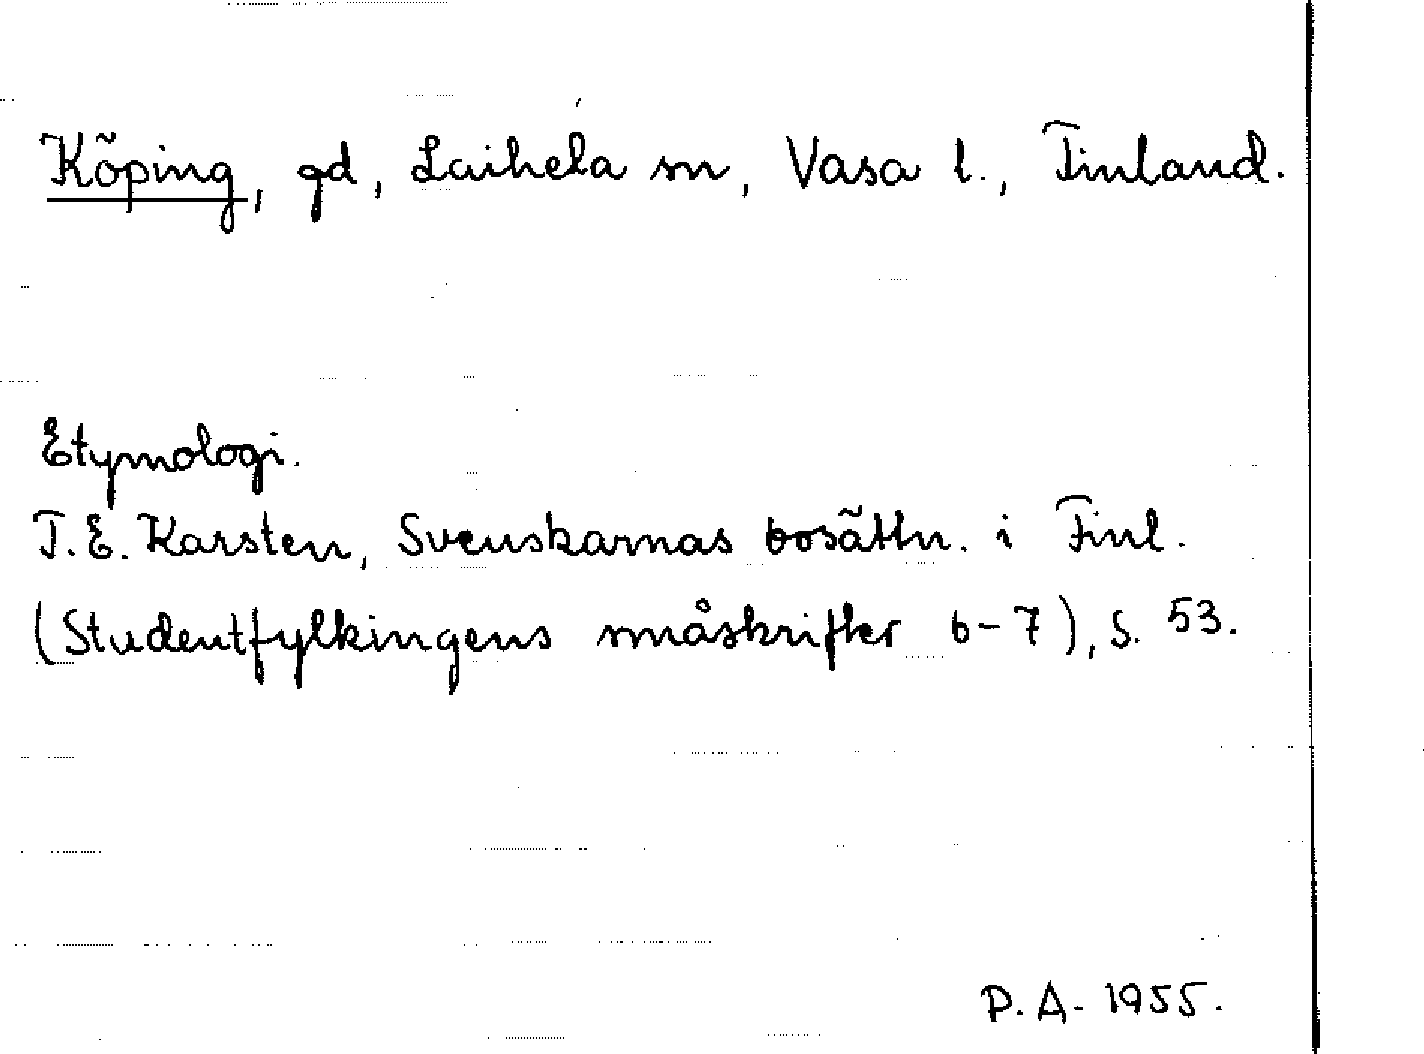 Köping, gd, Laihela sn, Vasa l., Finland.
Etymologi.
T.E. Karsten, Svenskarnas bosättn. i Finl.
(Studentfylkingens småskrifter 6-7), s. 53.
P.A. 1955.